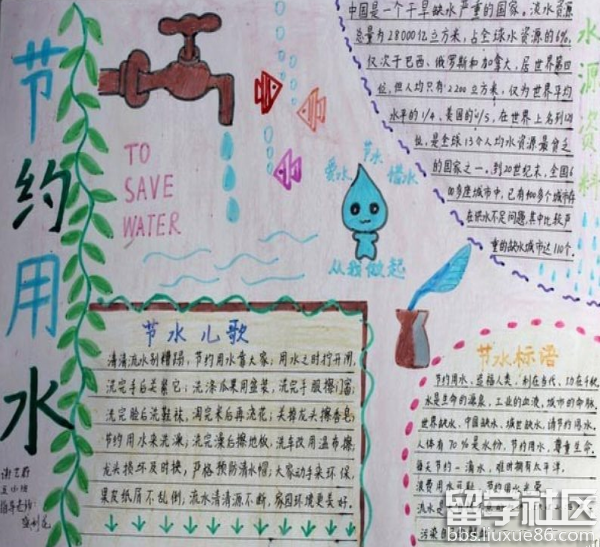 节约用水
TO
SAVE
WATER
爱水 节水 惜水
从我做起
水源资料
中国是一个干旱缺水严重的国家。淡水资源
总量有28000亿立方米,占全球水资源的6%,
仅次于巴西、俄罗斯和加拿大,居世界第四
位,但人均只有2200立方米,仅为世界平均
水平的1/4、美国的1/5,在世界上名列121
位,是全球13个人均水资源最贫乏
的国家之一。到20世纪末,全国6
00多座城市中,已有400多个城市存
在供水不足问题,其中比较严
重的缺水城市达110个。
节水儿歌
清清流水别糟蹋,节约用水靠大家;用水之时拧开闸,
洗完手后关紧它;洗涤瓜果用盆装,洗完手服擦门窗;
洗完脸后洗鞋袜,淘完米后再浇花,关掉龙头擦香皂,
节约用水来洗澡;洗完澡后擦地板,洗车改用湿布擦,
龙头损坏及时换,严格预防清水帽;大家动手来环保,
果皮纸屑不乱倒;流水清清源不断,家园环境更美好。
节水标语
节约用水、造福人类,利在当代、功在千秋
水是生命的源泉、工业的血液、城市的命脉。
世界缺水、中国缺水、城世缺水,请节约用水。
人体有70%是水份,节约用水,尊重生命。
每天节约一滴水,难时拥有太平洋。
浪费用水可耻,节约用水光荣
流水
污染
留学社区
bbs.liuxue86.com